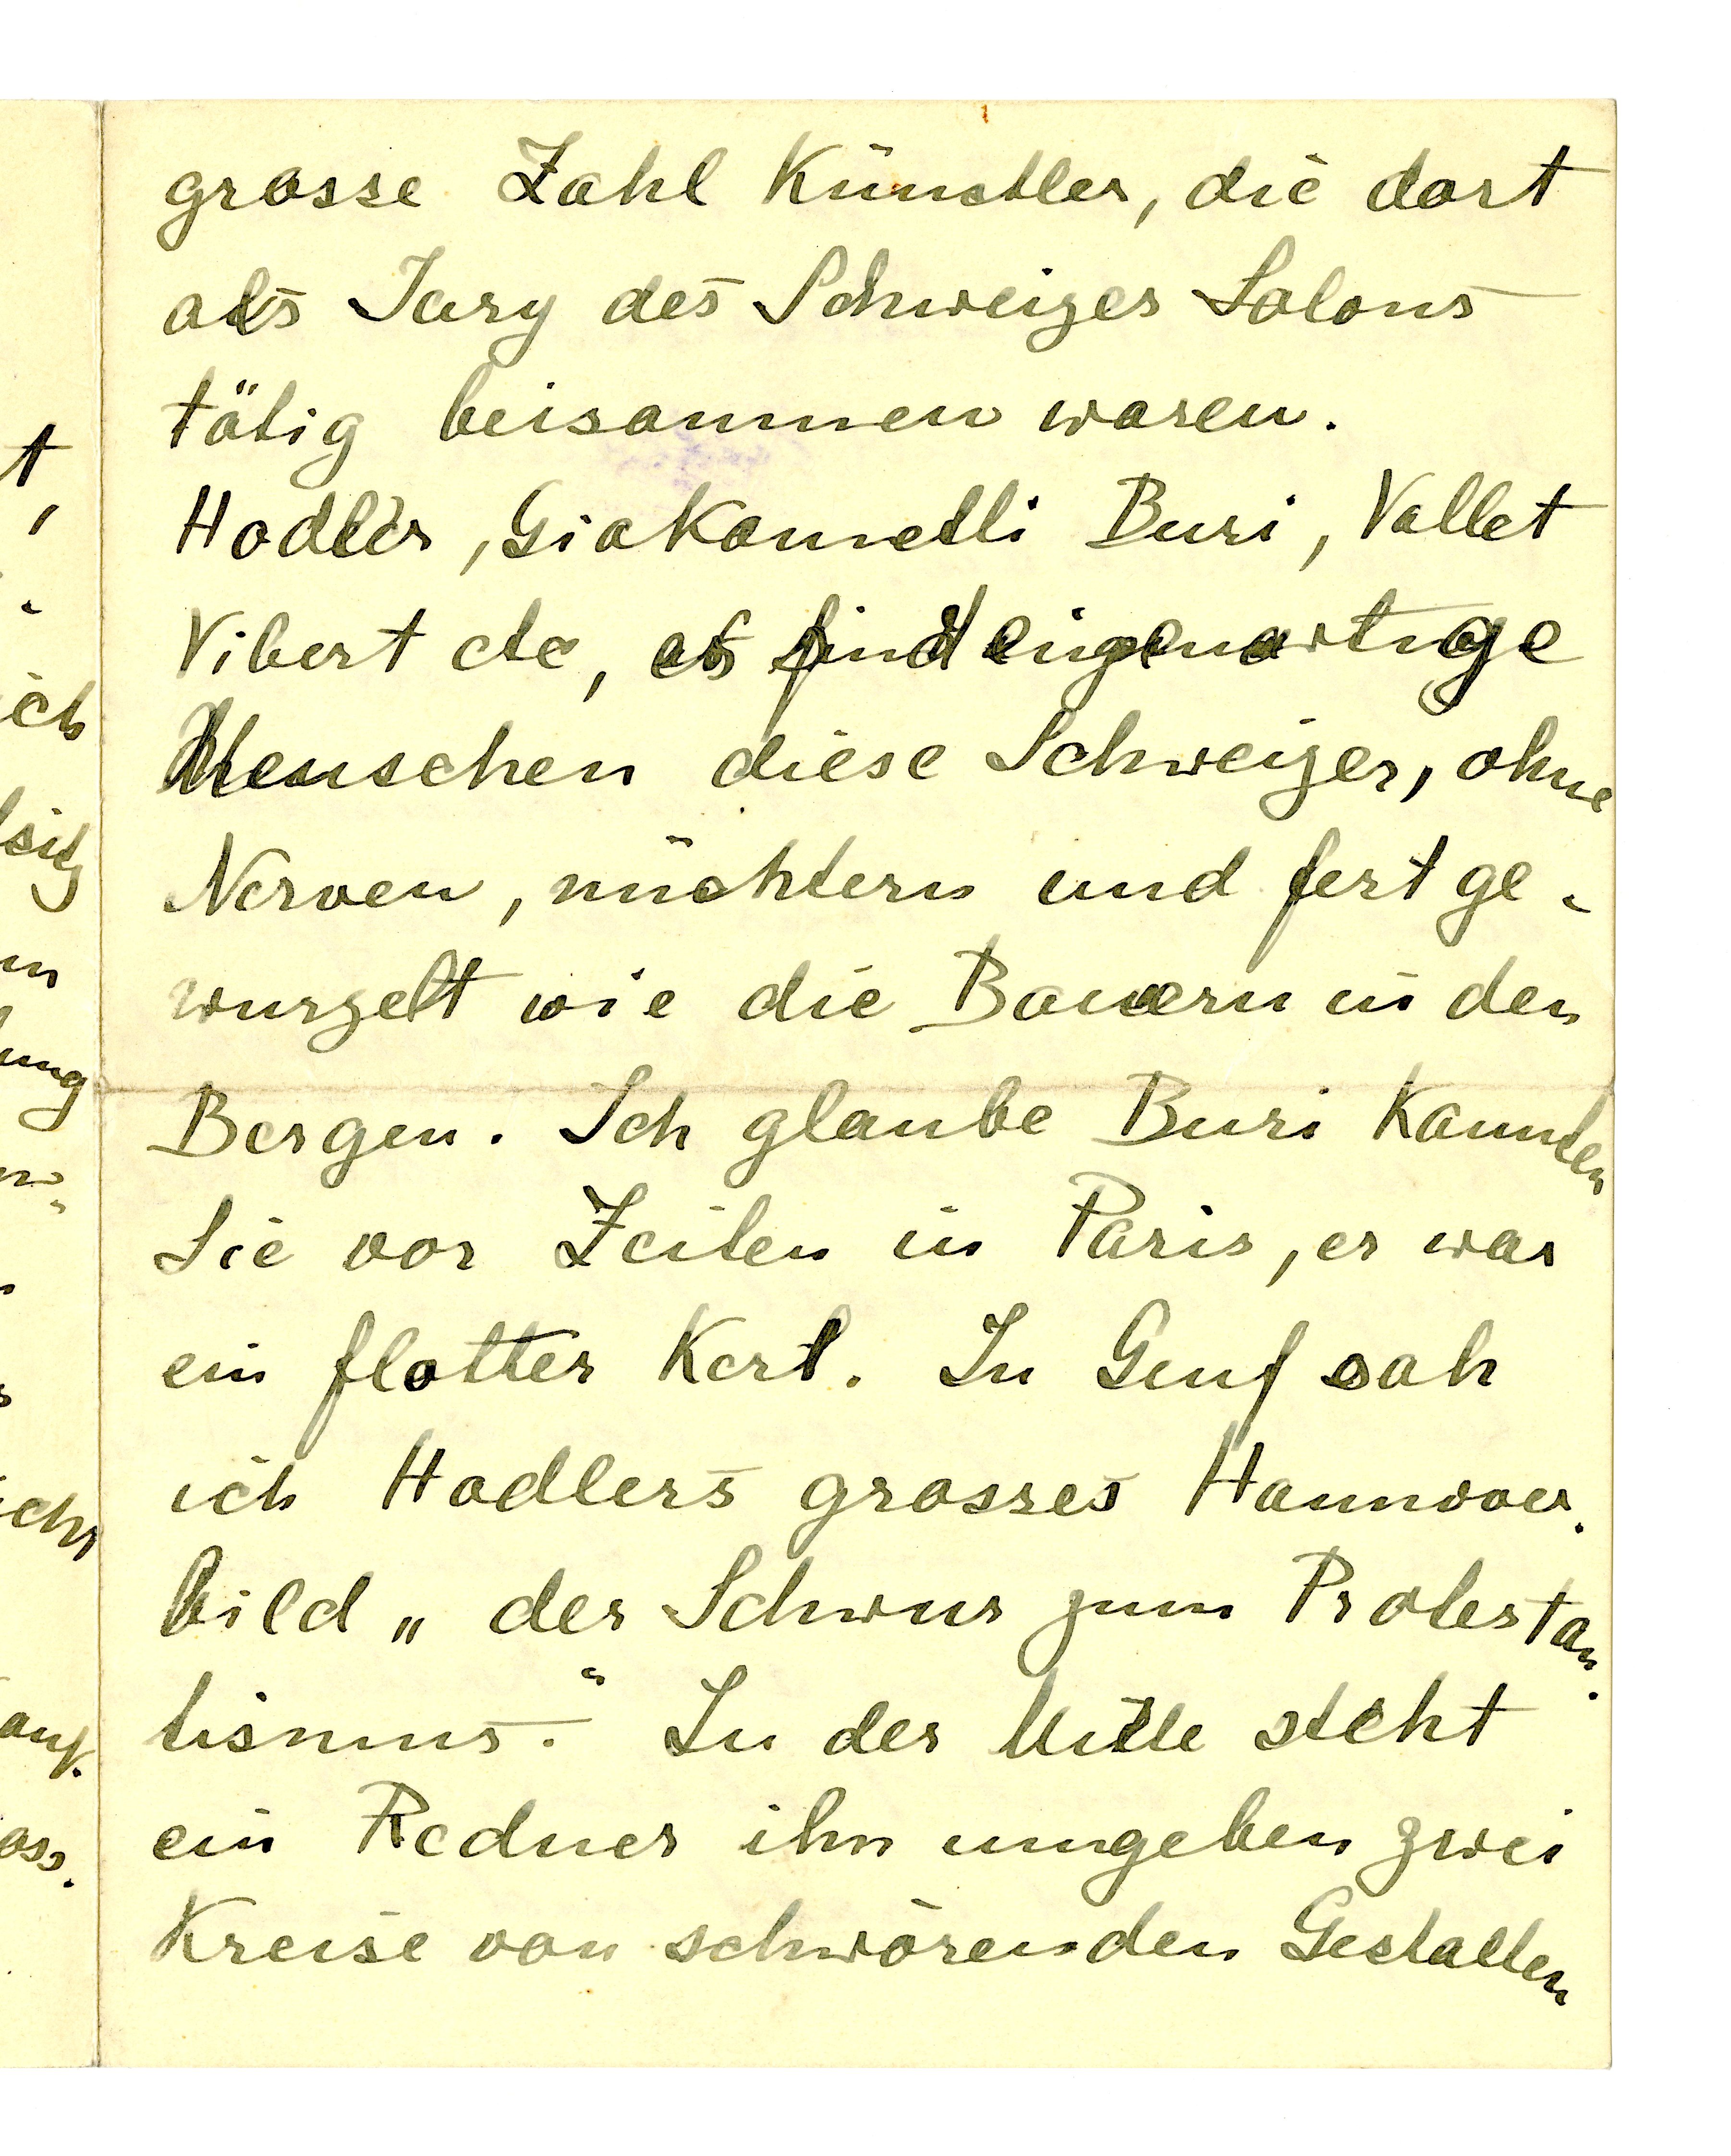 grosse Zahl Künstler, die dort
als Jury des Schweizer Salons
tätig beisammen waren.
Hodler, Giakometti Buri, Vallet
Vibert etc, es sind eigenartige
Menschen diese Schweizer, ohne
Nerven, nüchtern und fest ge-
wurzelt wie die Bauern in den
Bergen. Ich glaube Buri kannten
Sie vor Zeiten in Paris, er war
ein flotter Kerl. In Genf sah
ich Hodlers grosses Hannover.
bild „der Schwur zum Protestan.
tismus." In der Mitte steht
ein Redner ihn umgeben zwei
Kreise von schwörenden Gestalten